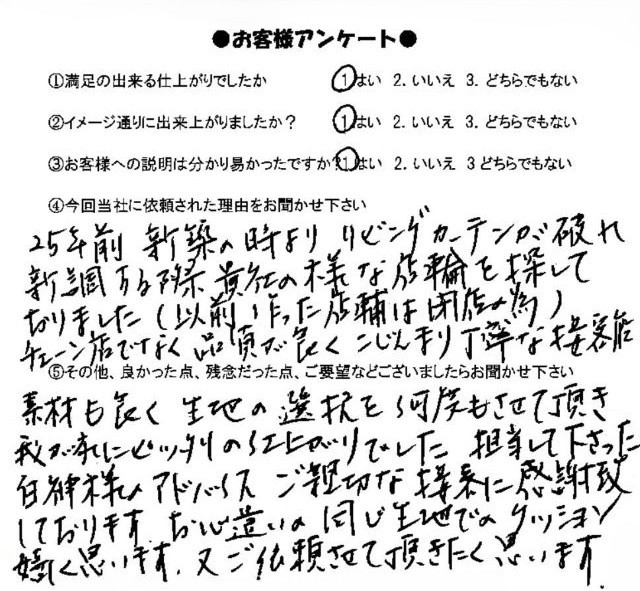 ●お客様アンケート●
①満足の出来る仕上がりでしたか 1はい 2.いいえ 3.どちらでもない
②イメージ通りに出来上がりましたか？ 1はい 2.いいえ 3.どちらでもない
③お客様への説明は分かり易かったですか？1はい 2.いいえ 3どちらでもない
④今回当社に依頼された理由をお聞かせ下さい
25年前 新築の時より リビングカーテンが破れ
新調する際 貴社の様な店輪を探して
おりました(以前 作った店輔は閉店の為)
チェーン店でなく 品質が良く こじんまり丁寧な接客店
⑤その他、良かった点、残念だった点、ご要望などございましたらお聞かせ下さい
素材も良く 生地の選択を何度もさせて頂き
我が家にピッタリの仕上がりでした 担当して下さった
白律様のアドバイス ご親切な接客に感謝致
しております。お心遣いの同じ生地でのクッション
嬉しく思います。又ご依頼させて頂きたく思います。